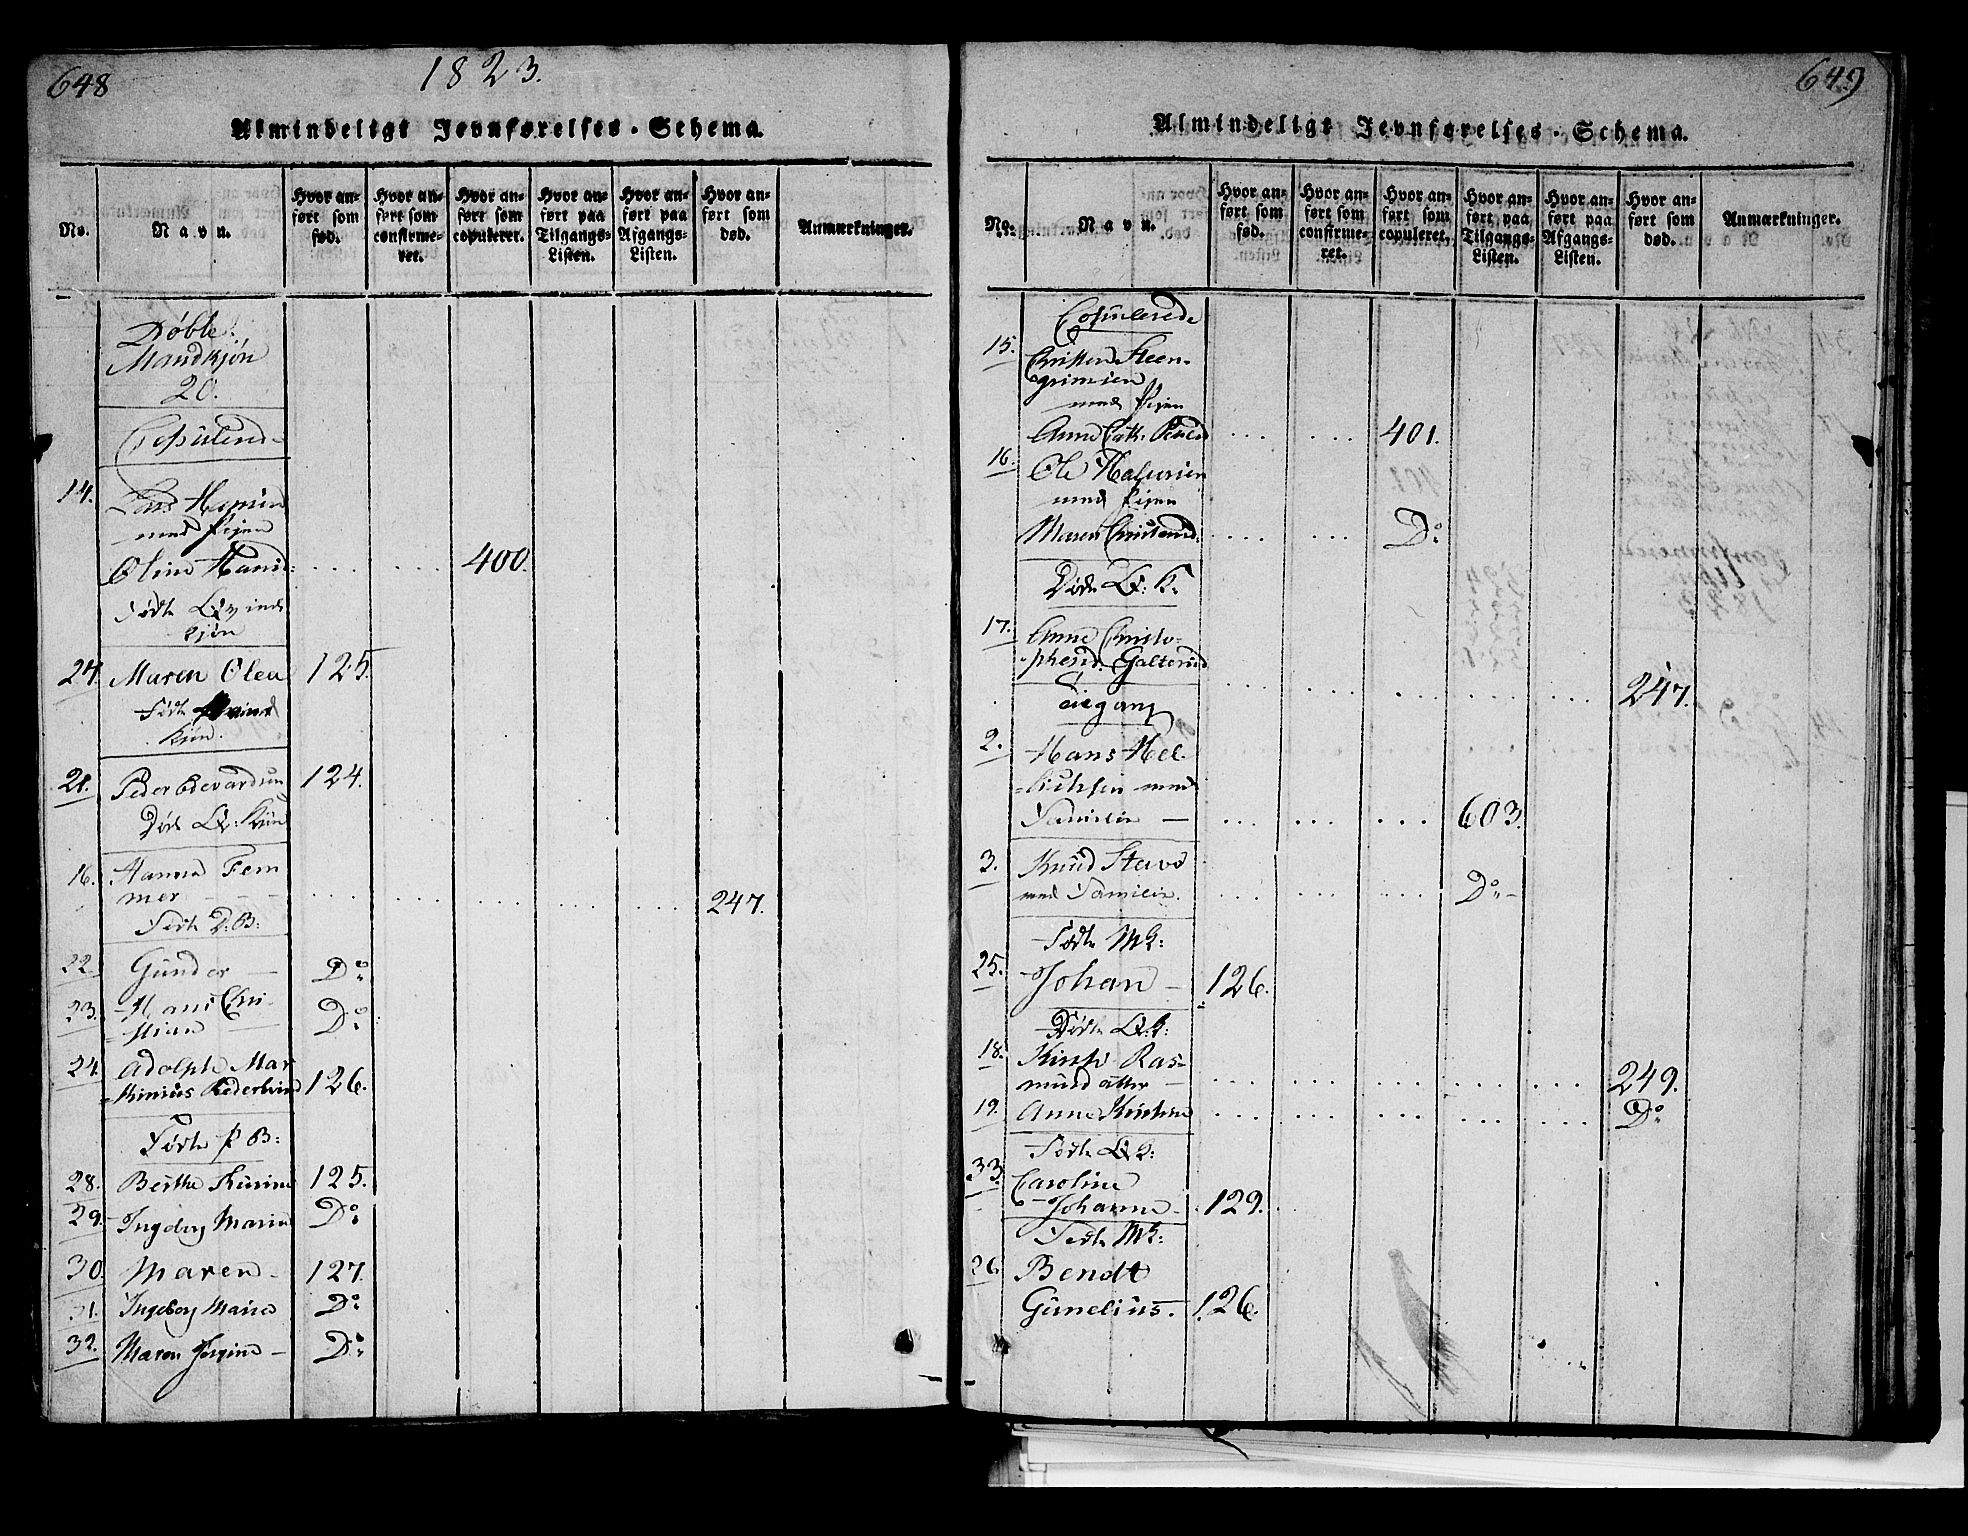 648
1823.
Almindeligt Jevnførelses-Schema.
No.
Navn.
Hvor anført som fød.
Hvor anført som confirmeret.
Hvor anført som copuleret.
Hvor anført paa Tilgangs-Listen.
Hvor anført paa Afgangs-Listen.
Hvor anført som død.
Anmærkninger.
Døbte
Mandkjøn
20.
14.
med Pigen
Oline Hansd: . . . . . . 400.
Født Qvinde
kjøn
27. Maren Olea 125.
Født Qvind
Kjøn.
21. Peder Edevardsen 124.
Død Q: Kjøn
16. Hanna Fem
mer . . . . . . 247.
Født D: B:
22. Gunder — Do
23. Hans Chri-
stian Do
24. Adolph Mar
thinius 126.
Født P B:
28. Berthe 125.
29. Ingeborg Marie Do
30. Maren 127.
31. Ingeborg Maria Do
32. Maren Jørgine — Do
649
Almindeligt Jevnførelses-Schema.
No.
Navn.
Hvor anført som fød.
Hvor anført som confirmeret.
Hvor anført som copuleret.
Hvor anført paa Tilgangs-Listen.
Hvor anført paa Afgangs-Listen.
Hvor anført som død.
Anmærkninger.
Copulerede
15. Christen Steen-
grimsen
med Pigen
Anne Cath: . . . . . . 401.
16. Ole Halvorsen
med Pigen
Maren . . . . . . Do
Døde Q: K:
17. Anne Christo-
phersd. Galterud . . . . . . 247.
Tilgang
2. Hans Hel-
med
Familie — . . . . . . 603.
3. Knud
med Familie. . . . . . . Do —
Født MK:
25. Johan — 126.
Døde Q: K:
18. Kirsti Ras-
musdatter — . . . . . . 249.
19. Anne Kirstine . . . . . . Do
Født QK:
33. Caroline
Johanne — 129.
Født MK:
26. Bendt
Gunelius. 126.